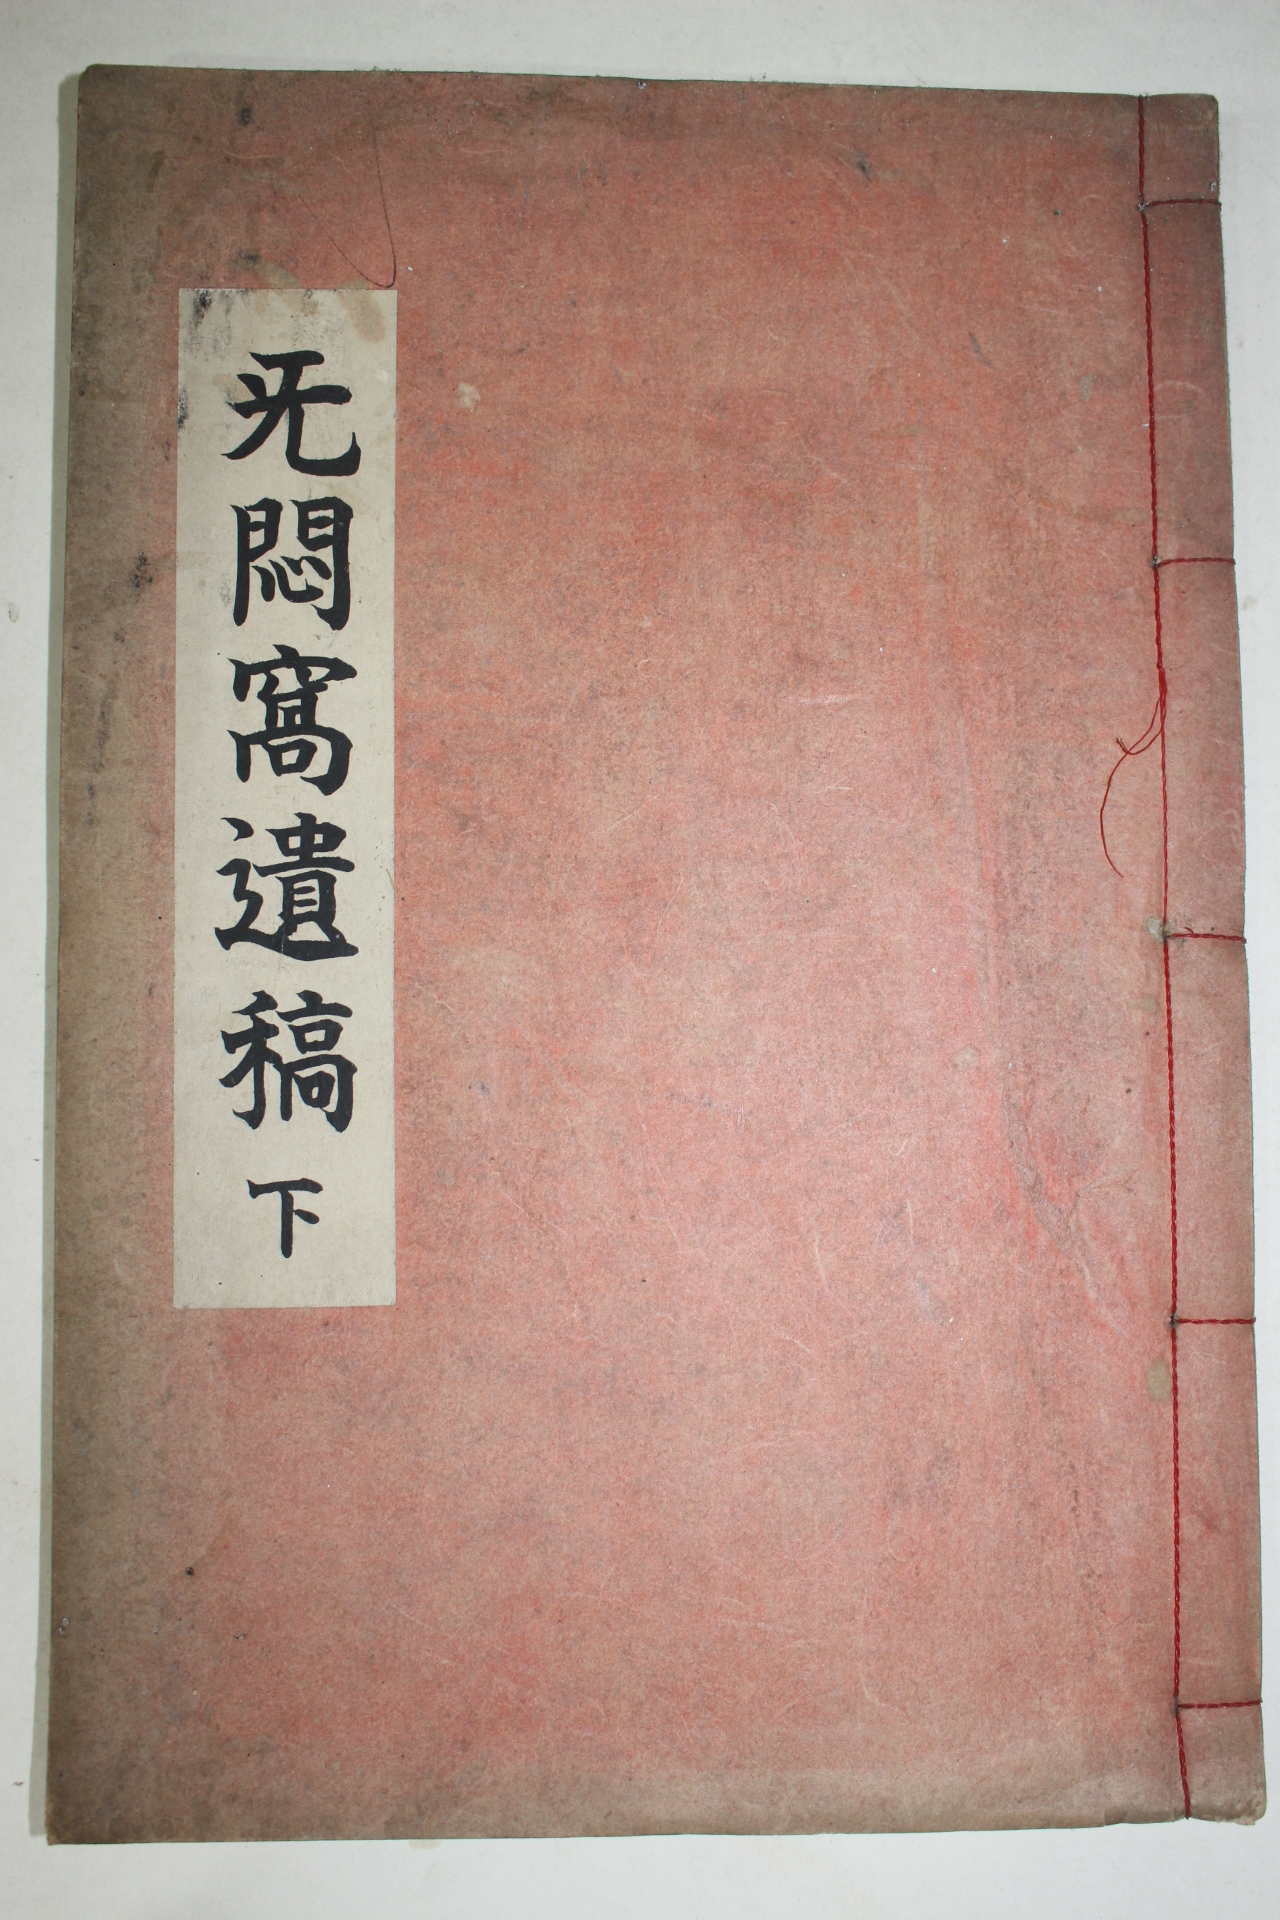 旡悶窩遺稿 下